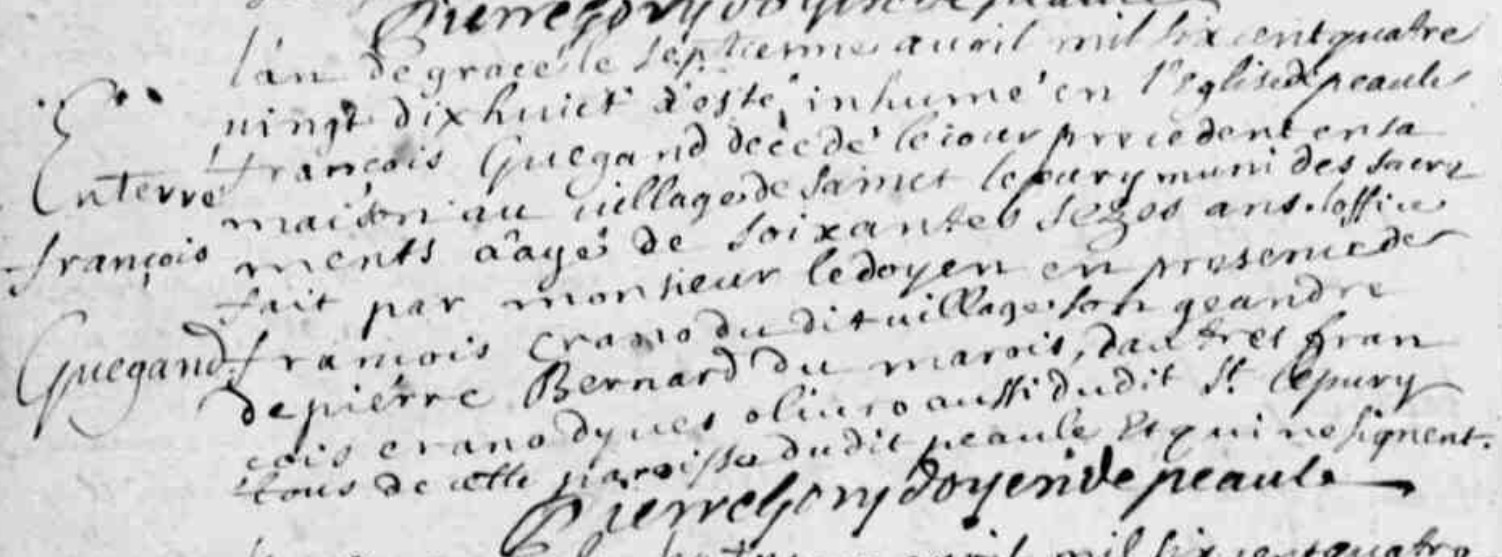 Pierre Gory doyen de peaule
l'an de grace le septieme auril mil six cent quatre
uingt dix huict a esté inhumé en l'Eglise de peaule
francois Guegand décédé le iour precedent en sa
maison au uillage de Sainct lepury muni des sacre
ments aâgé de soixantes sezes ans. loffice
fait par monsieur le doyen en presence de
francois crano du dit uillage son geandre
de pierre Bernard du marais, dautres fran
cois crano dyues oliuro aussi du dit St. lepury
tous de cette paroisse du dit peaule Et qui ne signent.
Pierre Gory doyen de peaule
Enterré
françois
Guegand.
auril mil six cent quatre